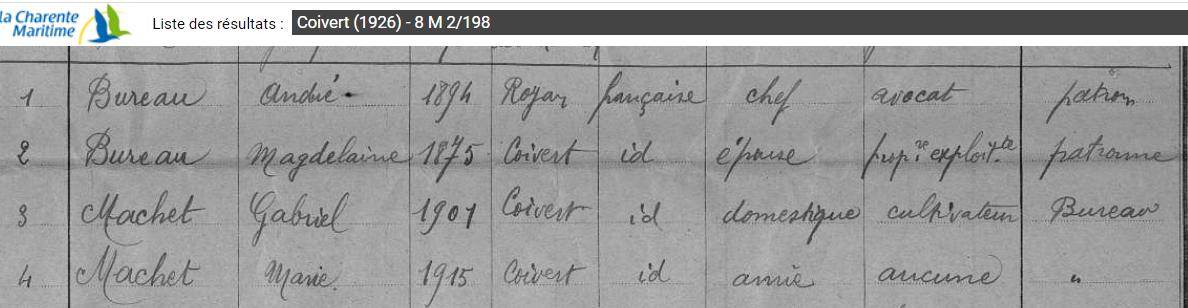 la Charente
Maritime
Liste des résultats : Coivert (1926) - 8 M 2/198
1 Bureau André 1894 Royan française chef avocat patron
2 Bureau Magdelaine 1875 Coivert id épouse propre exploitte patronne
3 Machet Gabriel 1901 Coivert id domestique cultivateur Bureau
4 Machet Marie 1915 Coivert id amie aucune "